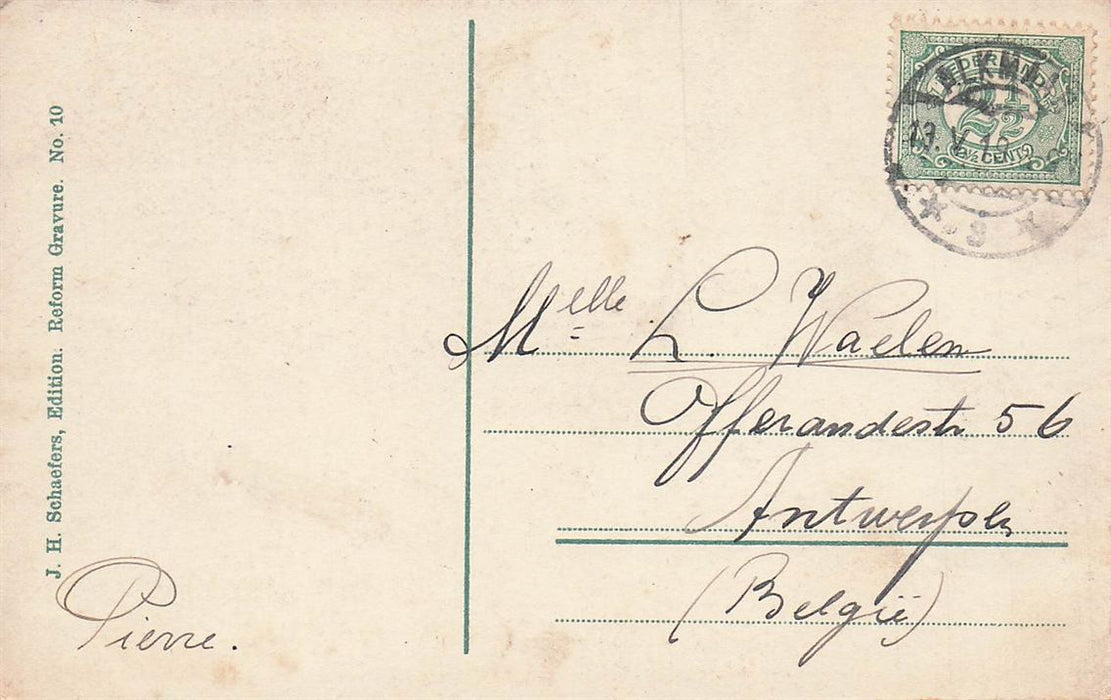 J. H. Schaefers, Edition. Reform Gravure. No. 10
NEDERLAND
2½
2½ CENT
ALKMAAR
Melle L. Waelen
Offerandestr 56
Antwerpen
(België)
Pierre.